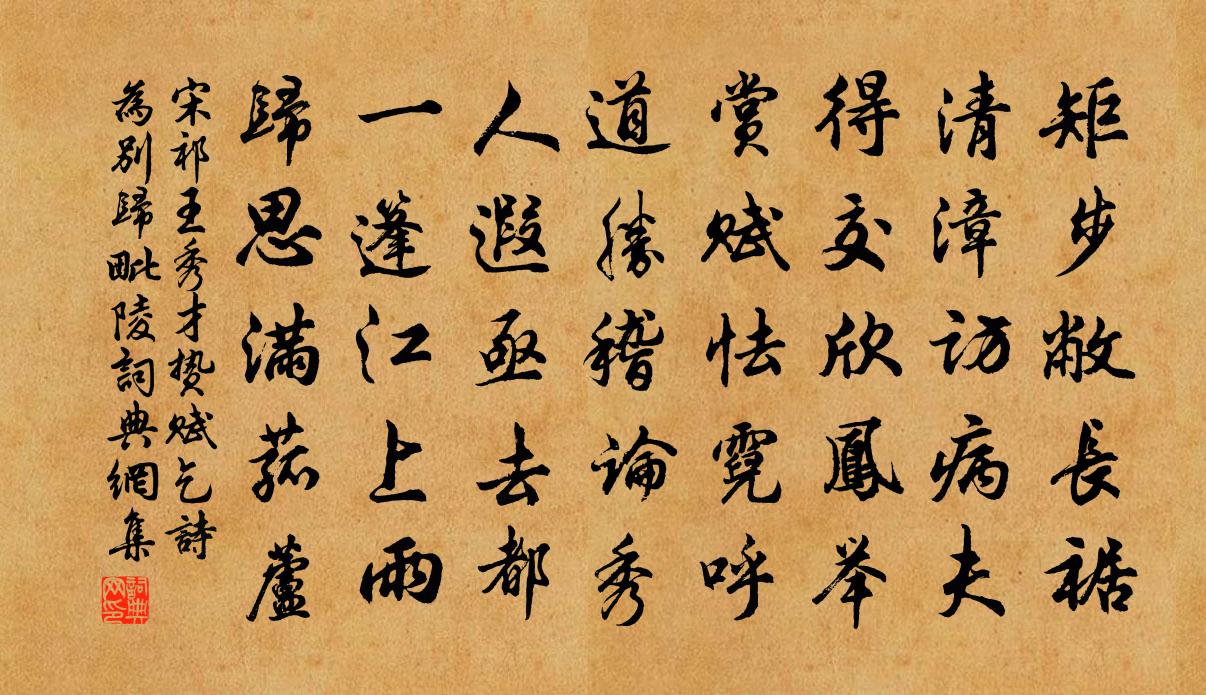 矩步敝長裾
清漳访病夫
得交欣鳳举
賞赋怯霓呼
道勝稽論秀
人遐亟去都
一蓬江上雨
歸思满菰蘆
宋祁王秀才贽赋乞詩
為别歸毗陵詞典網集
詞典网印